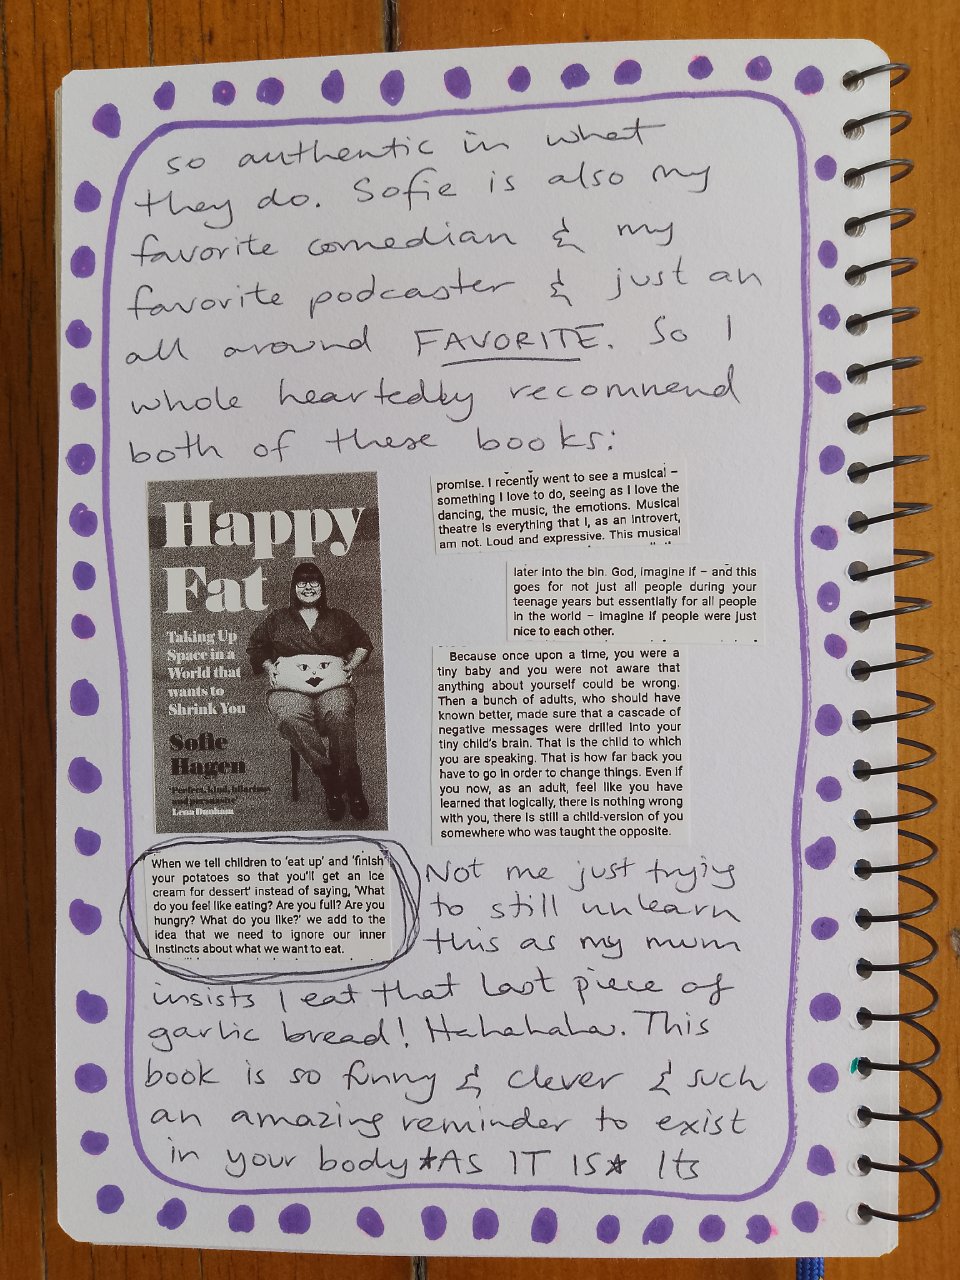 so authentic in what
they do. Sofie is also my
favorite comedian & my
favorite podcaster & just an
all around FAVORITE. So I
whole heartedly recommend
both of these books:
Happy
Fat
Taking Up
Space in a
World that
wants to
Shrink You
Sofie
Hagen
'Perfect, kind, hilarious
and persuasive'
Lena Dunham
promise. I recently went to see a musical –
something I love to do, seeing as I love the
dancing, the music, the emotions. Musical
theatre is everything that I, as an introvert,
am not. Loud and expressive. This musical
later into the bin. God, imagine if – and this
goes for not just all people during your
teenage years but essentially for all people
in the world – imagine if people were just
nice to each other.
Because once upon a time, you were a
tiny baby and you were not aware that
anything about yourself could be wrong.
Then a bunch of adults, who should have
known better, made sure that a cascade of
negative messages were drilled into your
tiny child's brain. That is the child to which
you are speaking. That is how far back you
have to go in order to change things. Even if
you now, as an adult, feel like you have
learned that logically, there is nothing wrong
with you, there is still a child-version of you
somewhere who was taught the opposite.
When we tell children to 'eat up' and 'finish
your potatoes so that you'll get an ice
cream for dessert' instead of saying, 'What
do you feel like eating? Are you full? Are you
hungry? What do you like?' we add to the
idea that we need to ignore our inner
instincts about what we want to eat.
Not me just trying
to still unlearn
this as my mum
insists I eat that last piece of
garlic bread! Hahahaha. This
book is so funny & clever & such
an amazing reminder to exist
in your body *AS IT IS* Its